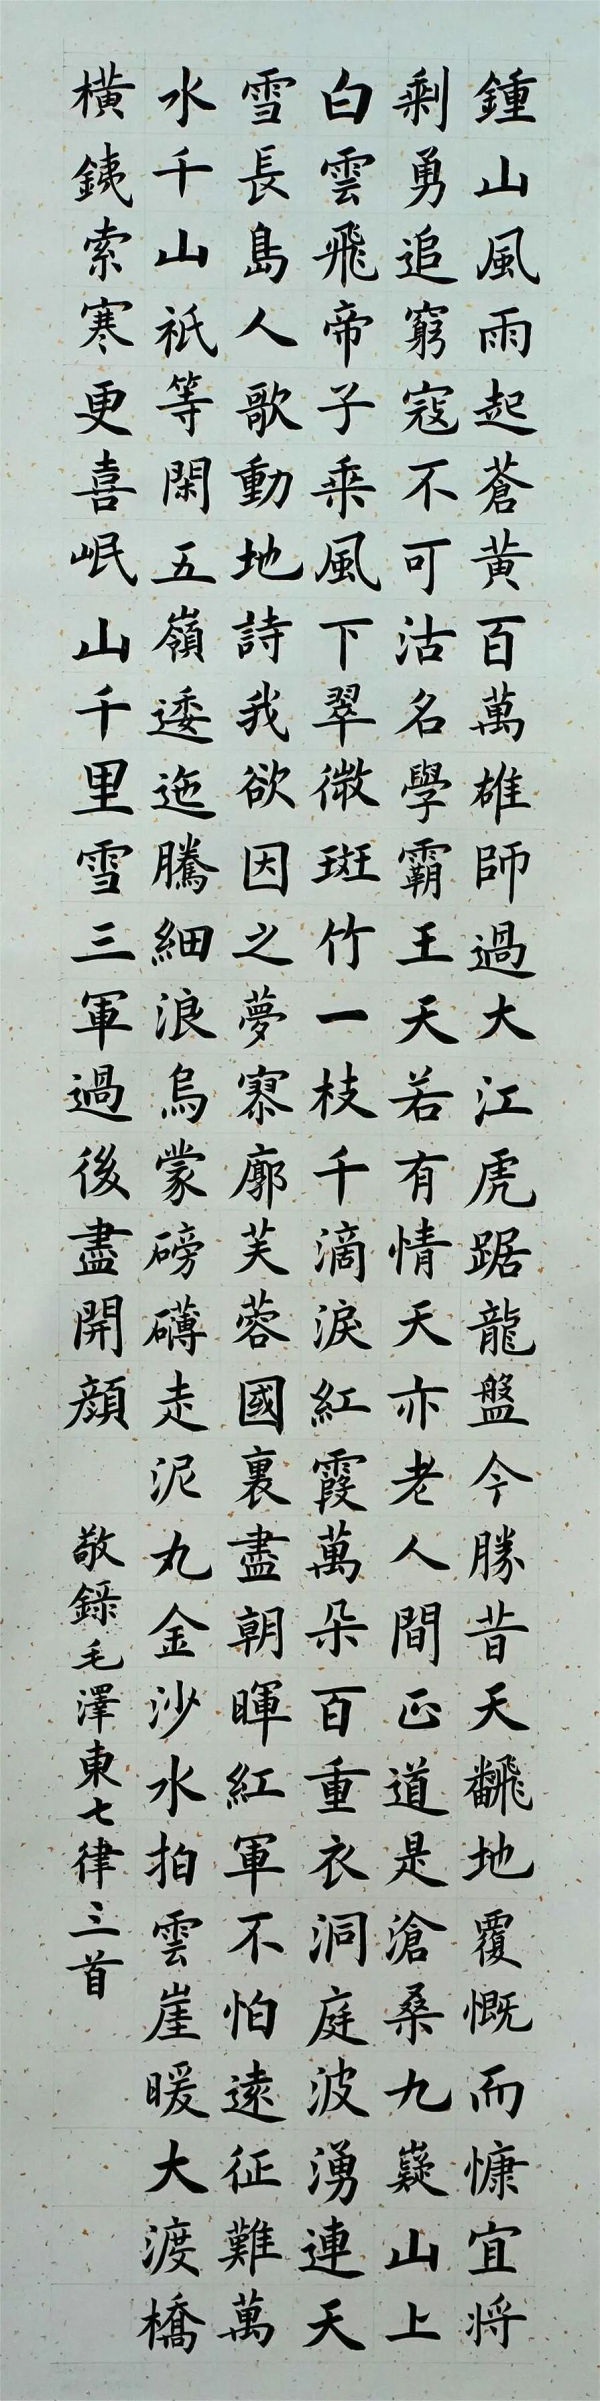 鍾山風雨起蒼黃百萬雄師過大江虎踞龍盤今勝昔天飜地覆慨而慷宜將
剩勇追窮寇不可沽名學霸王天若有情天亦老人間正道是滄桑九嶷山上
白雲飛帝子乘風下翠微斑竹一枝千滴淚紅霞萬朵百重衣洞庭波湧連天
雪長島人歌動地詩我欲因之夢寥廓芙蓉國裏盡朝暉紅軍不怕遠征難萬
水千山祇等閑五嶺逶迤騰細浪烏蒙磅礴走泥丸金沙水拍雲崖暖大渡橋
橫銕索寒更喜岷山千里雪三軍過後盡開顏
敬錄毛澤東七律三首